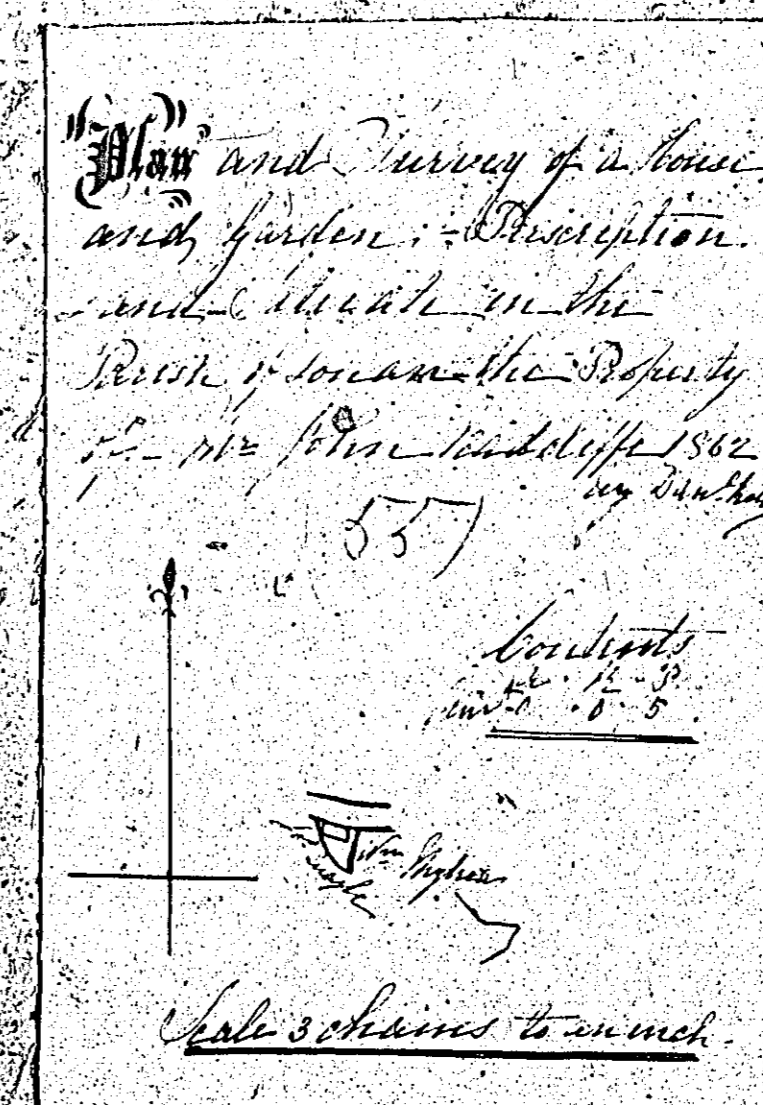 "Plan" and Survey of a House
and Garden :- Description
and Situate in the
Parish of Lonan the Property
of Mr John Radcliffe 1862
by
557
Contents
A R P
0 0 5
Wm
Scale 3 chains to an inch